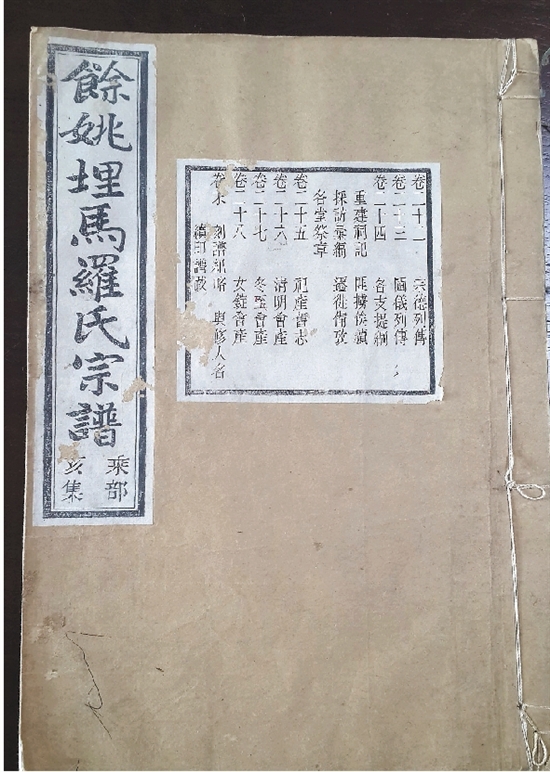 餘姚埋馬羅氏宗譜
乘部
亥集
卷二十二 列傳
卷二十三 閫儀列傳
卷二十四 各支提綱
重建祠記
採訪彙編 遷徙備攷
各堂祭章
卷二十五 祀產書志
卷二十六 清明會產
卷二十七 冬至會產
卷二十八 女鐙會產
卷末 刻譜紀略 與修人名
續印譜